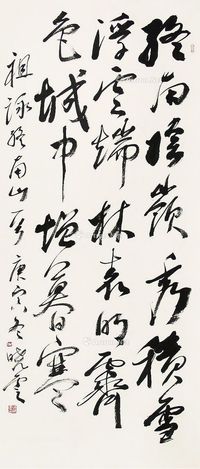 终南阴岭秀积雪
浮云端林表明霁
色城中增暮日寒
祖詠终南山一首庚寅冬晓云